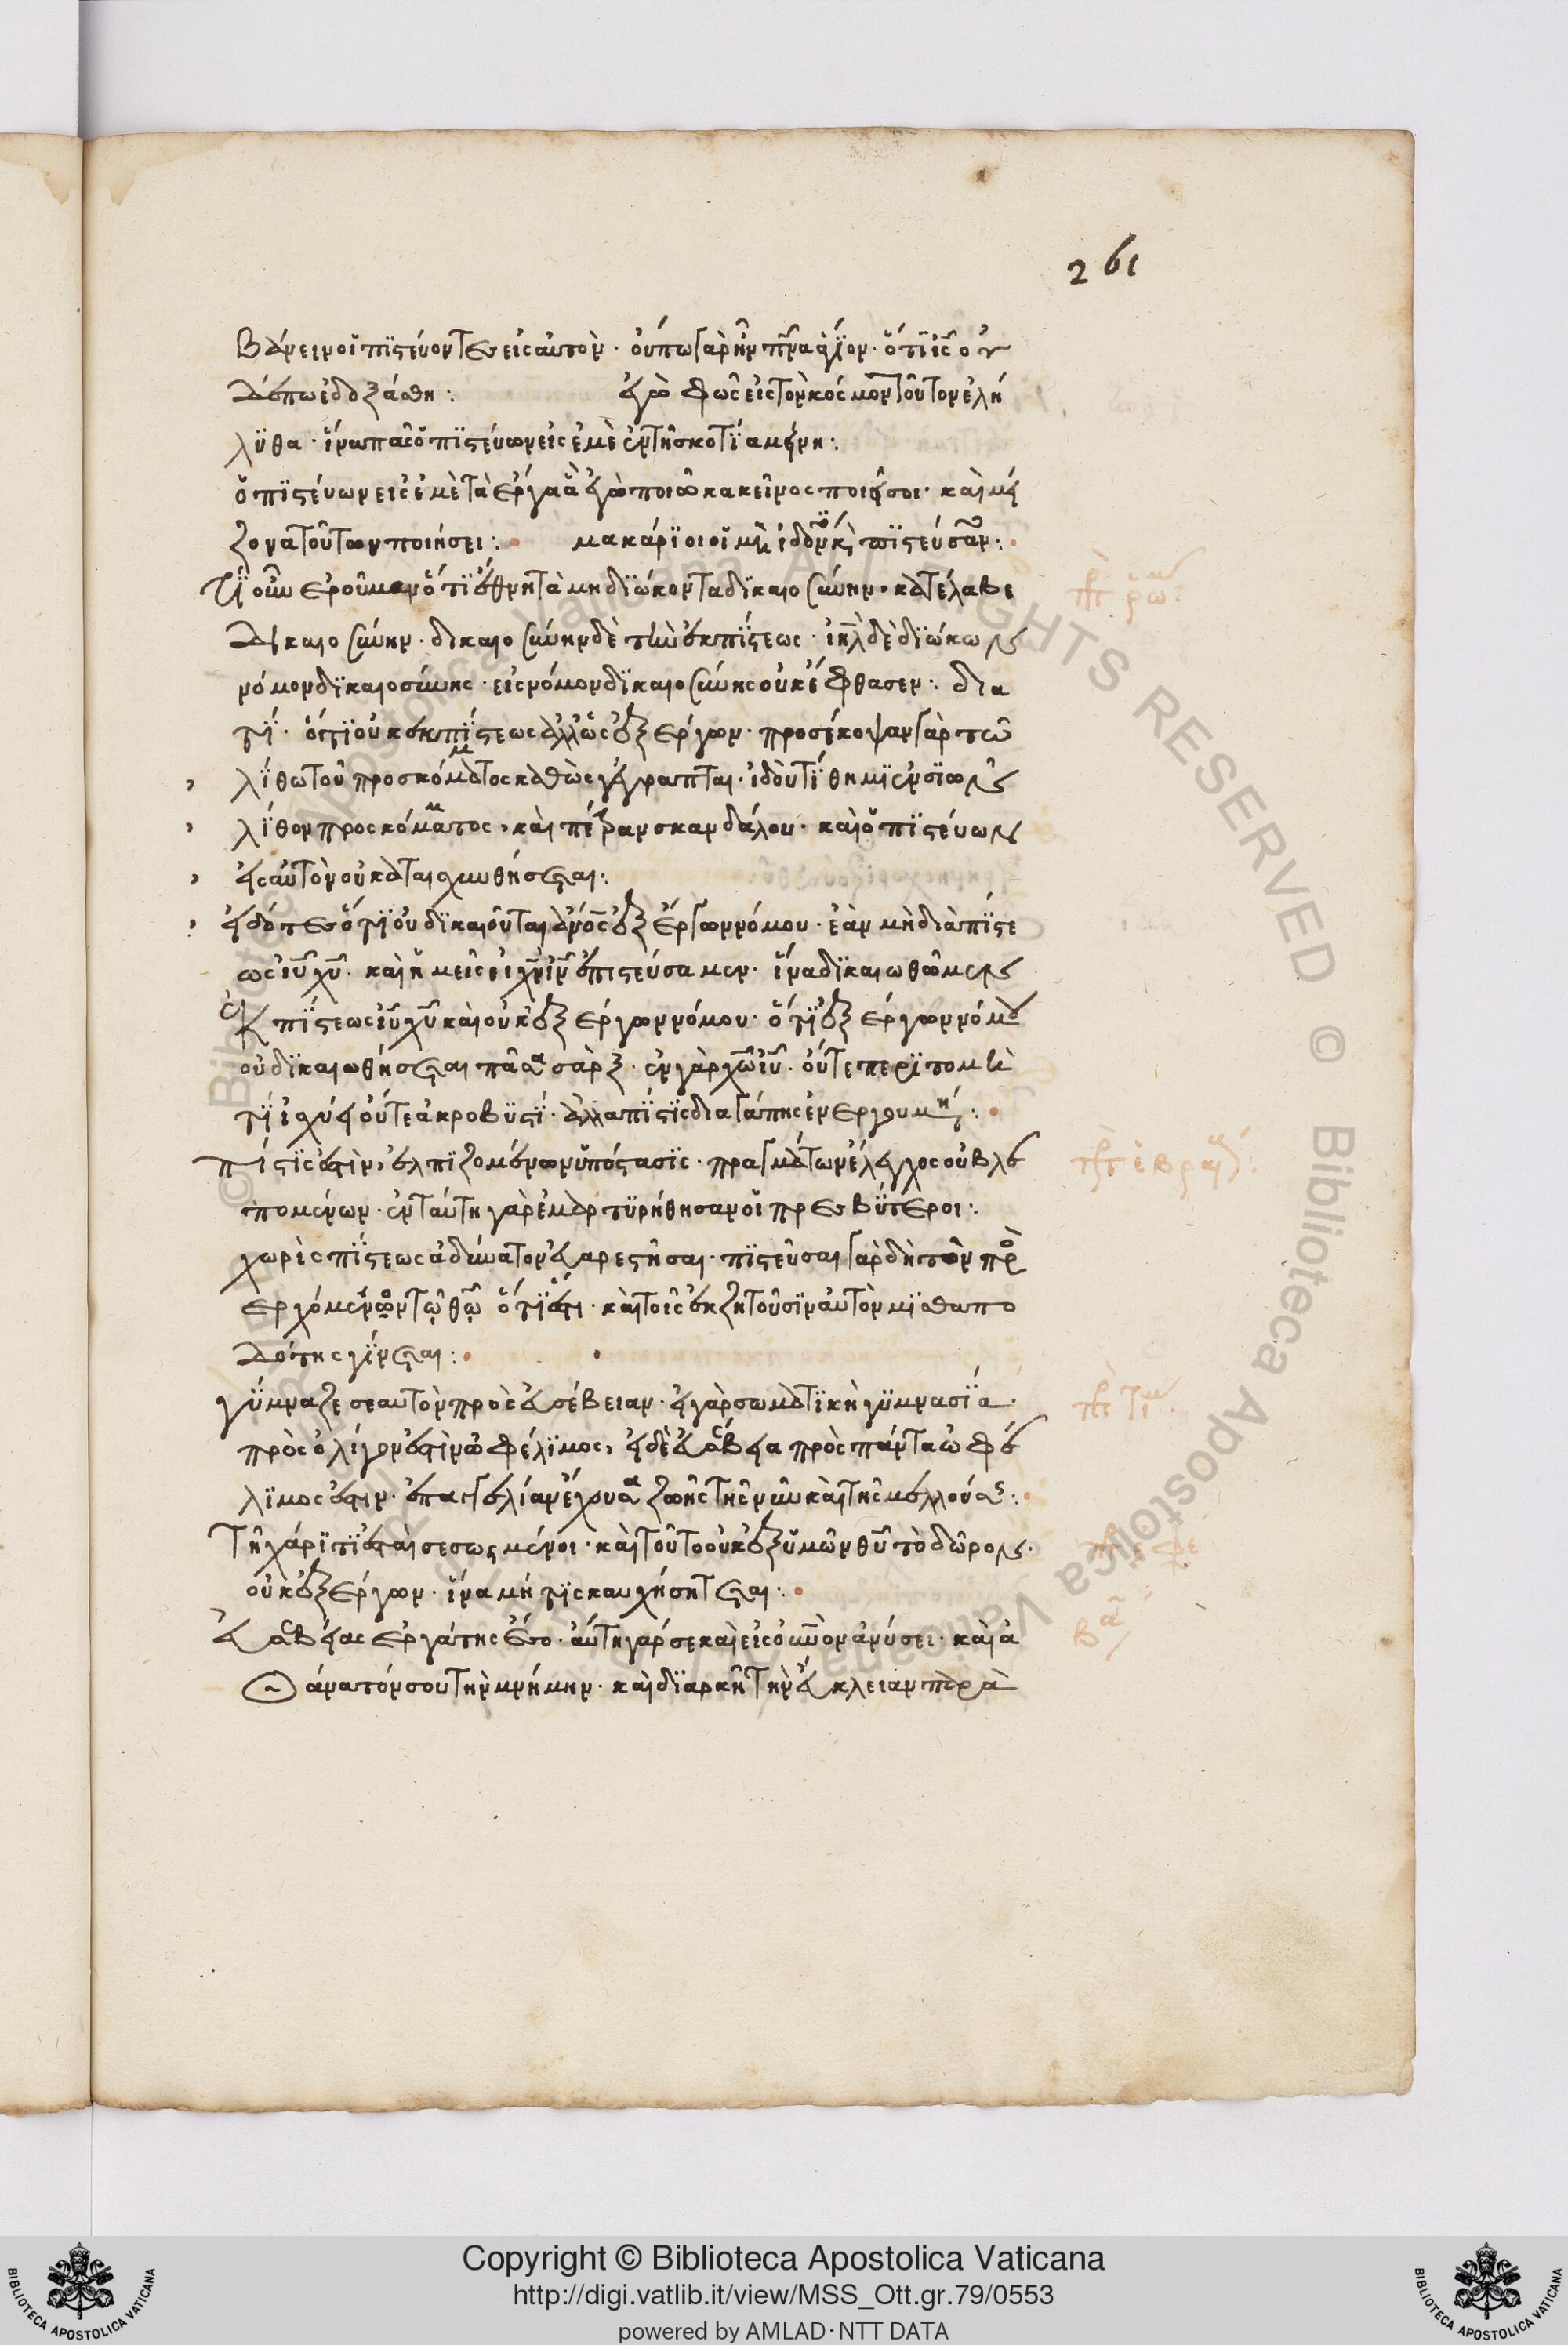 261
βάνειν οἱ πιστεύοντες εἰς αὐτόν · οὔπω γὰρ ἦν πνα ἅγιον · ὅτι ις οὐ
δέπω ἐδοξάσθη : ἐγὼ φῶς εἰς τὸν κόσμον τοῦτον ἐλή
λυθα · ἵνα πας ὁ πιστεύων εἰς ἐμὲ ἐν τῆ σκοτία μείνη :
ὁ πιστεύων εἰς ἐμὲ τὰ ἔργα ἃ ἐγὼ ποιῶ κακεῖνος ποιήσει · καὶ μεί
ζονα τούτων ποιήσει : μακάριοι οἱ μὴ ἰδόντες καὶ πιστεύσαντες :
Τί οὖν ἐροῦμεν ὅτι ἔθνη τὰ μη διώκοντα δικαιοσύνην · κατέλαβε πρ ρω
δικαιοσύνην · δικαιοσύνην δὲ τὴν ἐκ πίστεως · ιηλ δὲ διώκων
νόμον δικαιοσύνης · εἰς νόμον δικαιοσύνης οὐκ ἔφθασεν : δια
τί · ὅτι οὐκ ἐκ πίστεως ἀλλ' ὡς ἐξ ἔργων · προσέκοψαν γὰρ τῶ
λίθω τοῦ προσκόμματος καθὼς γέγραπται · ἰδοὺ τίθημι ἐν σϊὼν
λίθον προσκόμματος · καὶ πέτραν σκανδάλου · καὶ ὁ πιστεύων
εἰς αὐτὸν οὐ καταισχυνθήσεται :
εἰδότες ὅτι οὐ δικαιοῦται ἀνος ἐξ ἔργων νόμου · ἐὰν μὴ διὰ πίστε
ως ιυ χυ · καὶ ἡμεῖς εἰς χν ιν ἐπιστεύσαμεν · ἵνα δικαιωθῶμεν
ἐκ πίστεως ιυ χυ καὶ οὐκ ἐξ ἔργων νόμου · ὅτι ἐξ ἔργων νόμου
οὐ δικαιωθήσεται πᾶσα σὰρξ · ἐν γὰρ χω ιυ · οὔτε περιτομὴ
τι ἰσχύει οὔτε ἀκροβυστί · ἀλλα πίστις δι αγάπης ἐνεργουμένη :
πίστις ἐστὶν, ἐλπιζομένων ὑπόστασις · πραγμάτων ἔλεγχος οὐ βλε πρ ἑβραί
πομένων · ἐν ταύτη γὰρ ἐμαρτυρήθησαν οἱ πρεσβύτεροι :
χωρὶς πίστεως ἀδύνατον εὐαρεστῆσαι · πιστεῦσαι γὰρ δὴ τὸν προ
ερχόμενον τῷ θω ὅτι ἔστι · καὶ τοῖς ἐκζητοῦσιν αὐτὸν μισθαπο
δότης γίνεται :
γύμναζε σεαυτὸν πρὸς εὐσέβειαν · ἡ γὰρ σωματικὴ γυμνασία · πρ τιμ
πρὸς ὀλίγον ἐστὶν ὠφέλιμος, ἡ δὲ εὐσέβεια πρὸς πάντα ὠφέ
λιμος ἐστιν · ἐπαγγελίαν ἔχουσα ζωῆς τῆς νῦν καὶ τῆς μελλούσης :
Τῆ χάριτί ἐσται σεσωσμένοι · καὶ τοῦτο οὐκ ἐξ ὑμῶν θυ τὸ δῶρον · πρ ἐφε
οὐκ ἐξ ἔργων · ἵνα μή τις καυχήσηται :
Εὐσεβείας ἐργάτης ἔσο · αὕτη γάρ σε καὶ εἰς οὐνον ἀνύσει · καὶ ἀ βα
θάνατόν σου τὴν μνήμην · καὶ διαρκῆ τὴν εὔκλειαν παρὰ
Copyright © Biblioteca Apostolica Vaticana
http://digi.vatlib.it/view/MSS_Ott.gr.79/0553
powered by AMLAD·NTT DATA